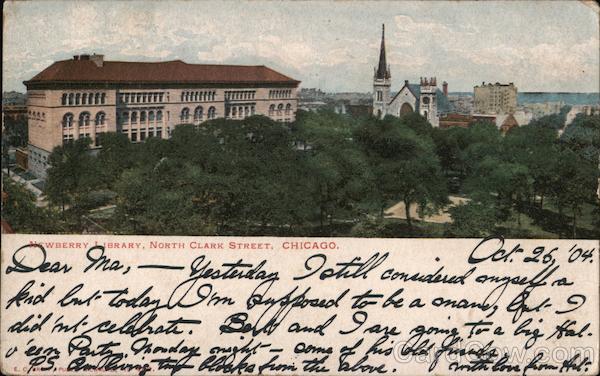 NEWBERRY LIBRARY, NORTH CLARK STREET, CHICAGO.
Oct. 26, '04.
Dear Ma, — Yesterday I still considered myself a
kid but today I'm supposed to be a man, but I
did'nt celebrate. Bert and I are going to a big Hal-
o'een Party Monday night – some of his old friends.
P.S. Am living two blocks from the above. With love from Hal.
CardCow.com